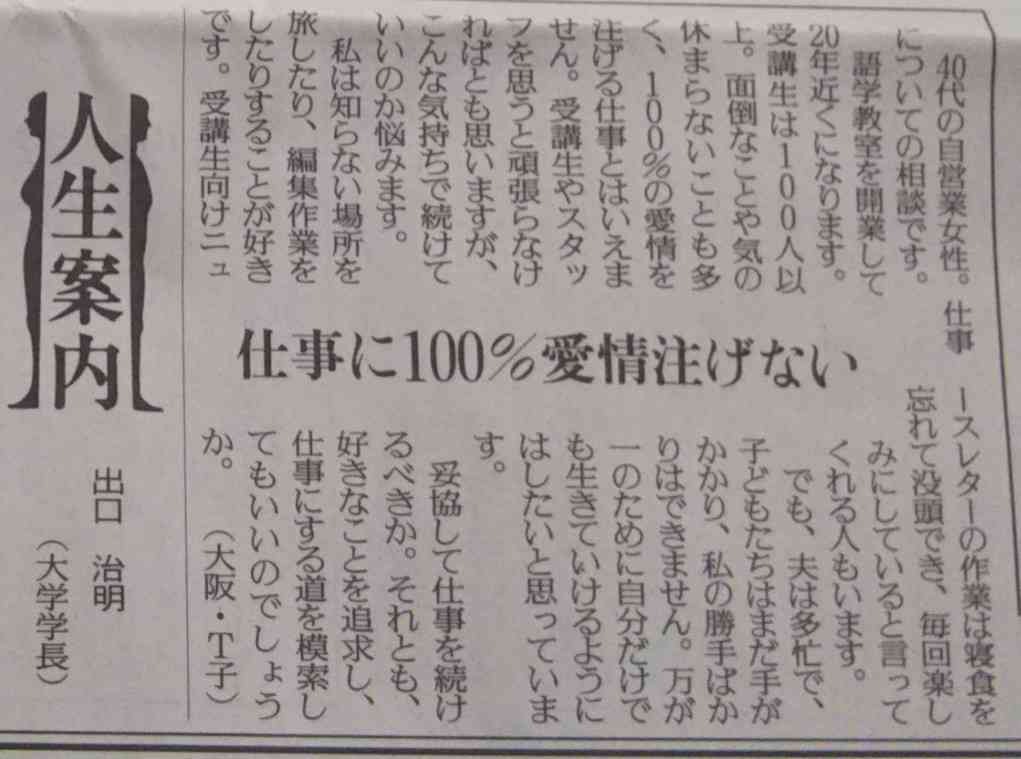 人生案内
出口 治明
(大学学長)
仕事に100%愛情注げない
40代の自営業女性。仕事
についての相談です。
語学教室を開業して
20年近くになります。
受講生は100人以
上。面倒なことや気の
休まらないことも多
く、100%の愛情を
注げる仕事とはいえま
せん。受講生やスタッ
フを思うと頑張らなけ
ればとも思いますが、
こんな気持ちで続けて
いいのか悩みます。
私は知らない場所を
旅したり、編集作業を
したりすることが好き
です。受講生向けニュ
ースレターの作業は寝食を
忘れて没頭でき、毎回楽し
みにしていると言って
くれる人もいます。
でも、夫は多忙で、
子どもたちはまだ手が
かかり、私の勝手ばか
りはできません。万が
一のために自分だけで
も生きていけるように
はしたいと思っていま
す。
妥協して仕事を続け
るべきか。それとも、
好きなことを追求し、
仕事にする道を模索し
てもいいのでしょう
か。 (大阪・T子)